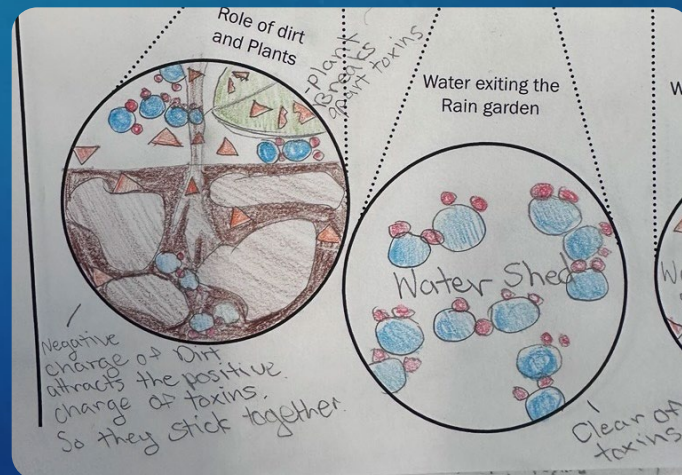 Role of dirt
and Plants
-Plant
Breaks
apart toxins
Water exiting the
Rain garden
W
Water Shed
Wa
Negative
charge of Dirt
attracts the positive
charge of toxins.
So they stick together.
Clear of
toxins